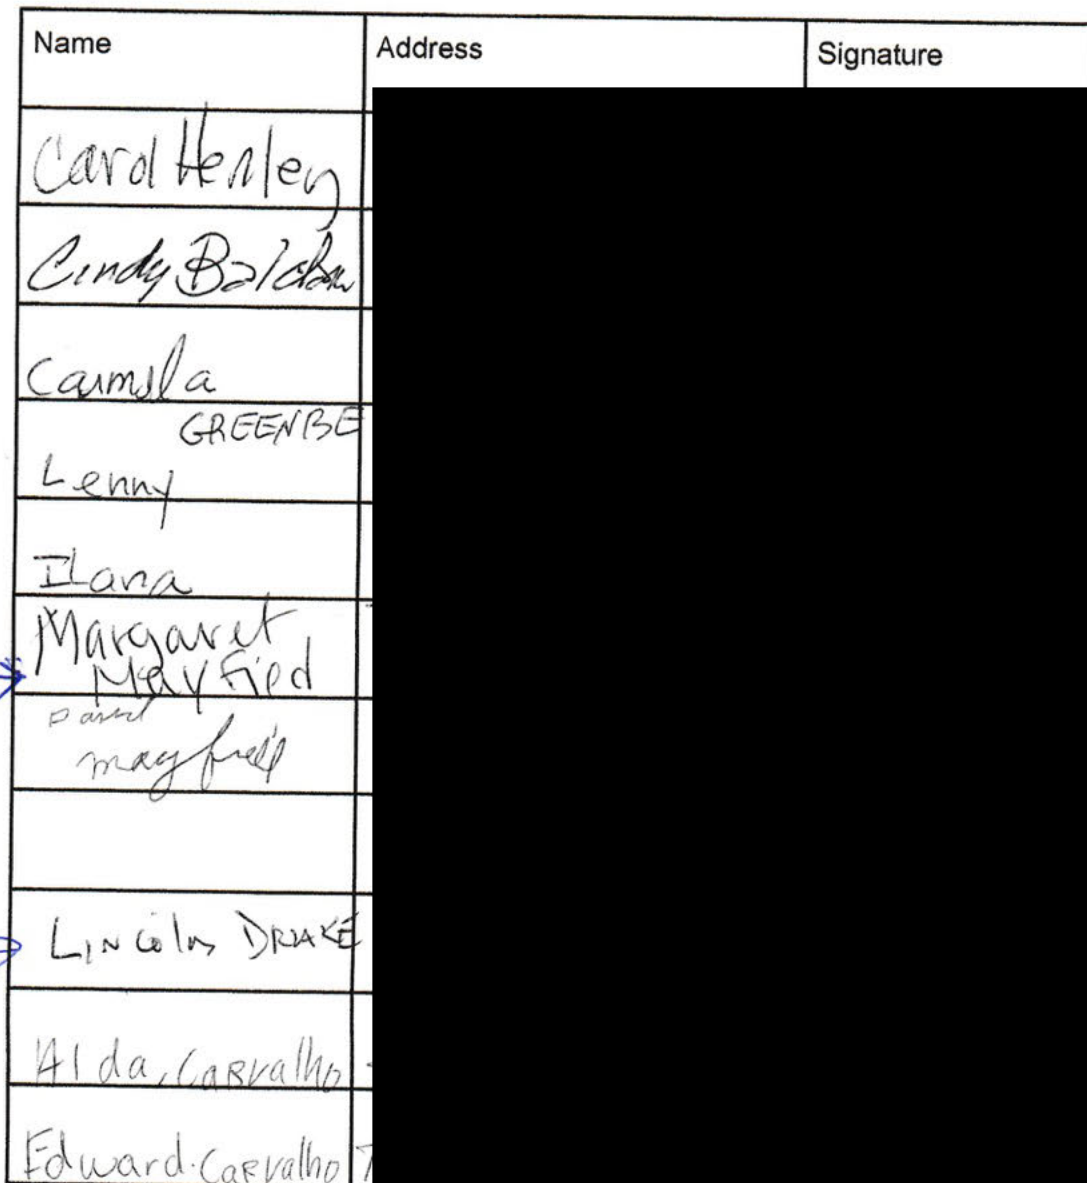 Name Address Signature
Carol Henley
Cindy
Carmela
GREENBE
Lenny
Ilana
Margaret
Mayfied
David
mayfield
Lincoln DRAKE
Alda, Carvalho
Edward. Carvalho